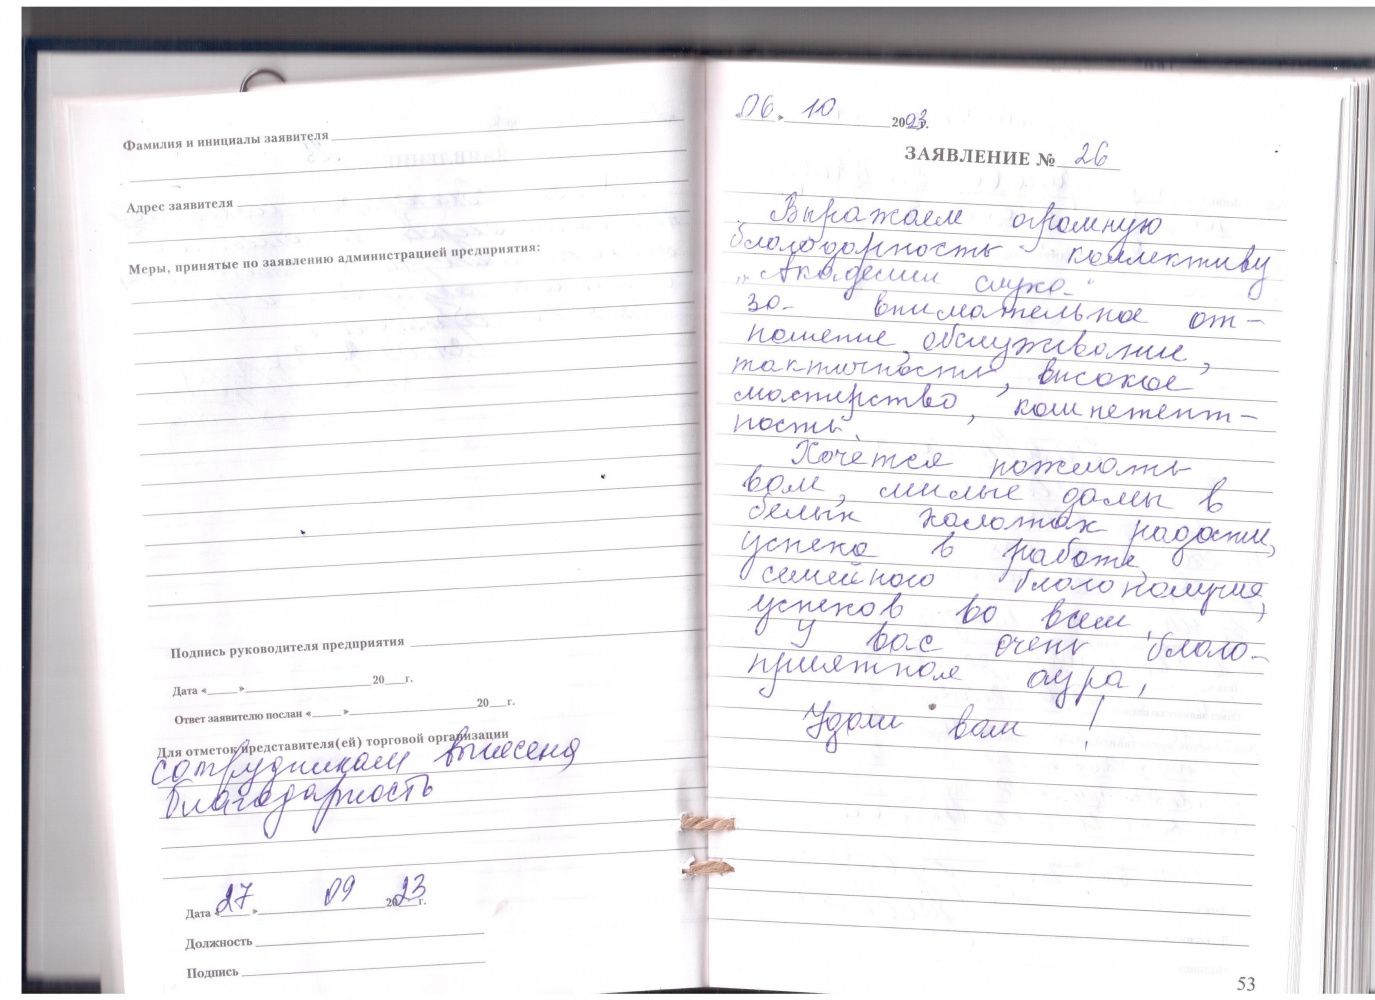 Фамилия и инициалы заявителя
Адрес заявителя
Меры, принятые по заявлению администрацией предприятия:
Подпись руководителя предприятия
Дата «____»____ 20__г.
Ответ заявителю послан «____»____ 20__г.
Для отметок представителя(ей) торговой организации
сотрудникам вынесена
благодарность
Дата «27» 09 2023г.
Должность
Подпись
06 » 10 2023г.
ЗАЯВЛЕНИЕ № 26
Выражаем огромную
благодарность коллективу
„Академии слуха"
за внимательное от-
ношение, обслуживание,
тактичность, высокое
мастерство, компетент-
ность.
Хочется пожелать
вам, милые дамы в
белых халатах радости,
успеха в работе,
семейного благополучия,
успехов во всем.
У вас очень благо-
приятная аура,
Удачи вам!
53